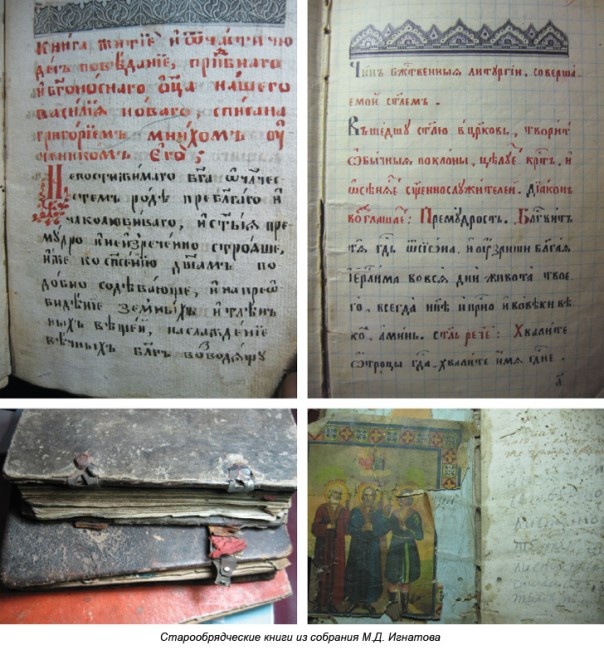 Книга житїе и ѿчасти чю
денъ повѣданїе, прпⷣбнаго
и бг҃оноснаго ѻц҃а нашего
василїа новаго списана
григорїемъ мнихомъ оу
ченикомъ его;
Непостижимаго бг҃а
стемъ родѣ преблагаго и
чл҃колюбиваго, и ст҃ыя пре
мудро и неизреченно строаше,
иже ко спасению дш҃амъ по
добно содѣвающе, и на преѡ
бидѣнїе земныхъ и тлѣн
ныхъ вещей, наслажденїе
вѣчныхъ бл҃гъ возводящу
Чинъ бж҃ственныя литургїи, соверша
емой ст҃лемъ.
Въшедшу ст҃лю въ црковь, творитъ
ѡбычныя поклоны, цѣлуетъ крⷭтъ, и
ѡсѣняетъ сщ҃еннослужителей. Дїаконъ
возглашаетъ: Премудрость. Блгⷭвитъ
тя гдⷭь ѿ сїѡна, и оузриши благая
їерⷭлима во вся дни живота твое
го. всегда нн҃ѣ и прⷭно и во вѣки вѣ
комъ. аминь. ст҃ль рече: Хвалите
ѿроцы гдⷭа. хвалите имя гдⷭне.
Старообрядческие книги из собрания М.Д. Игнатова